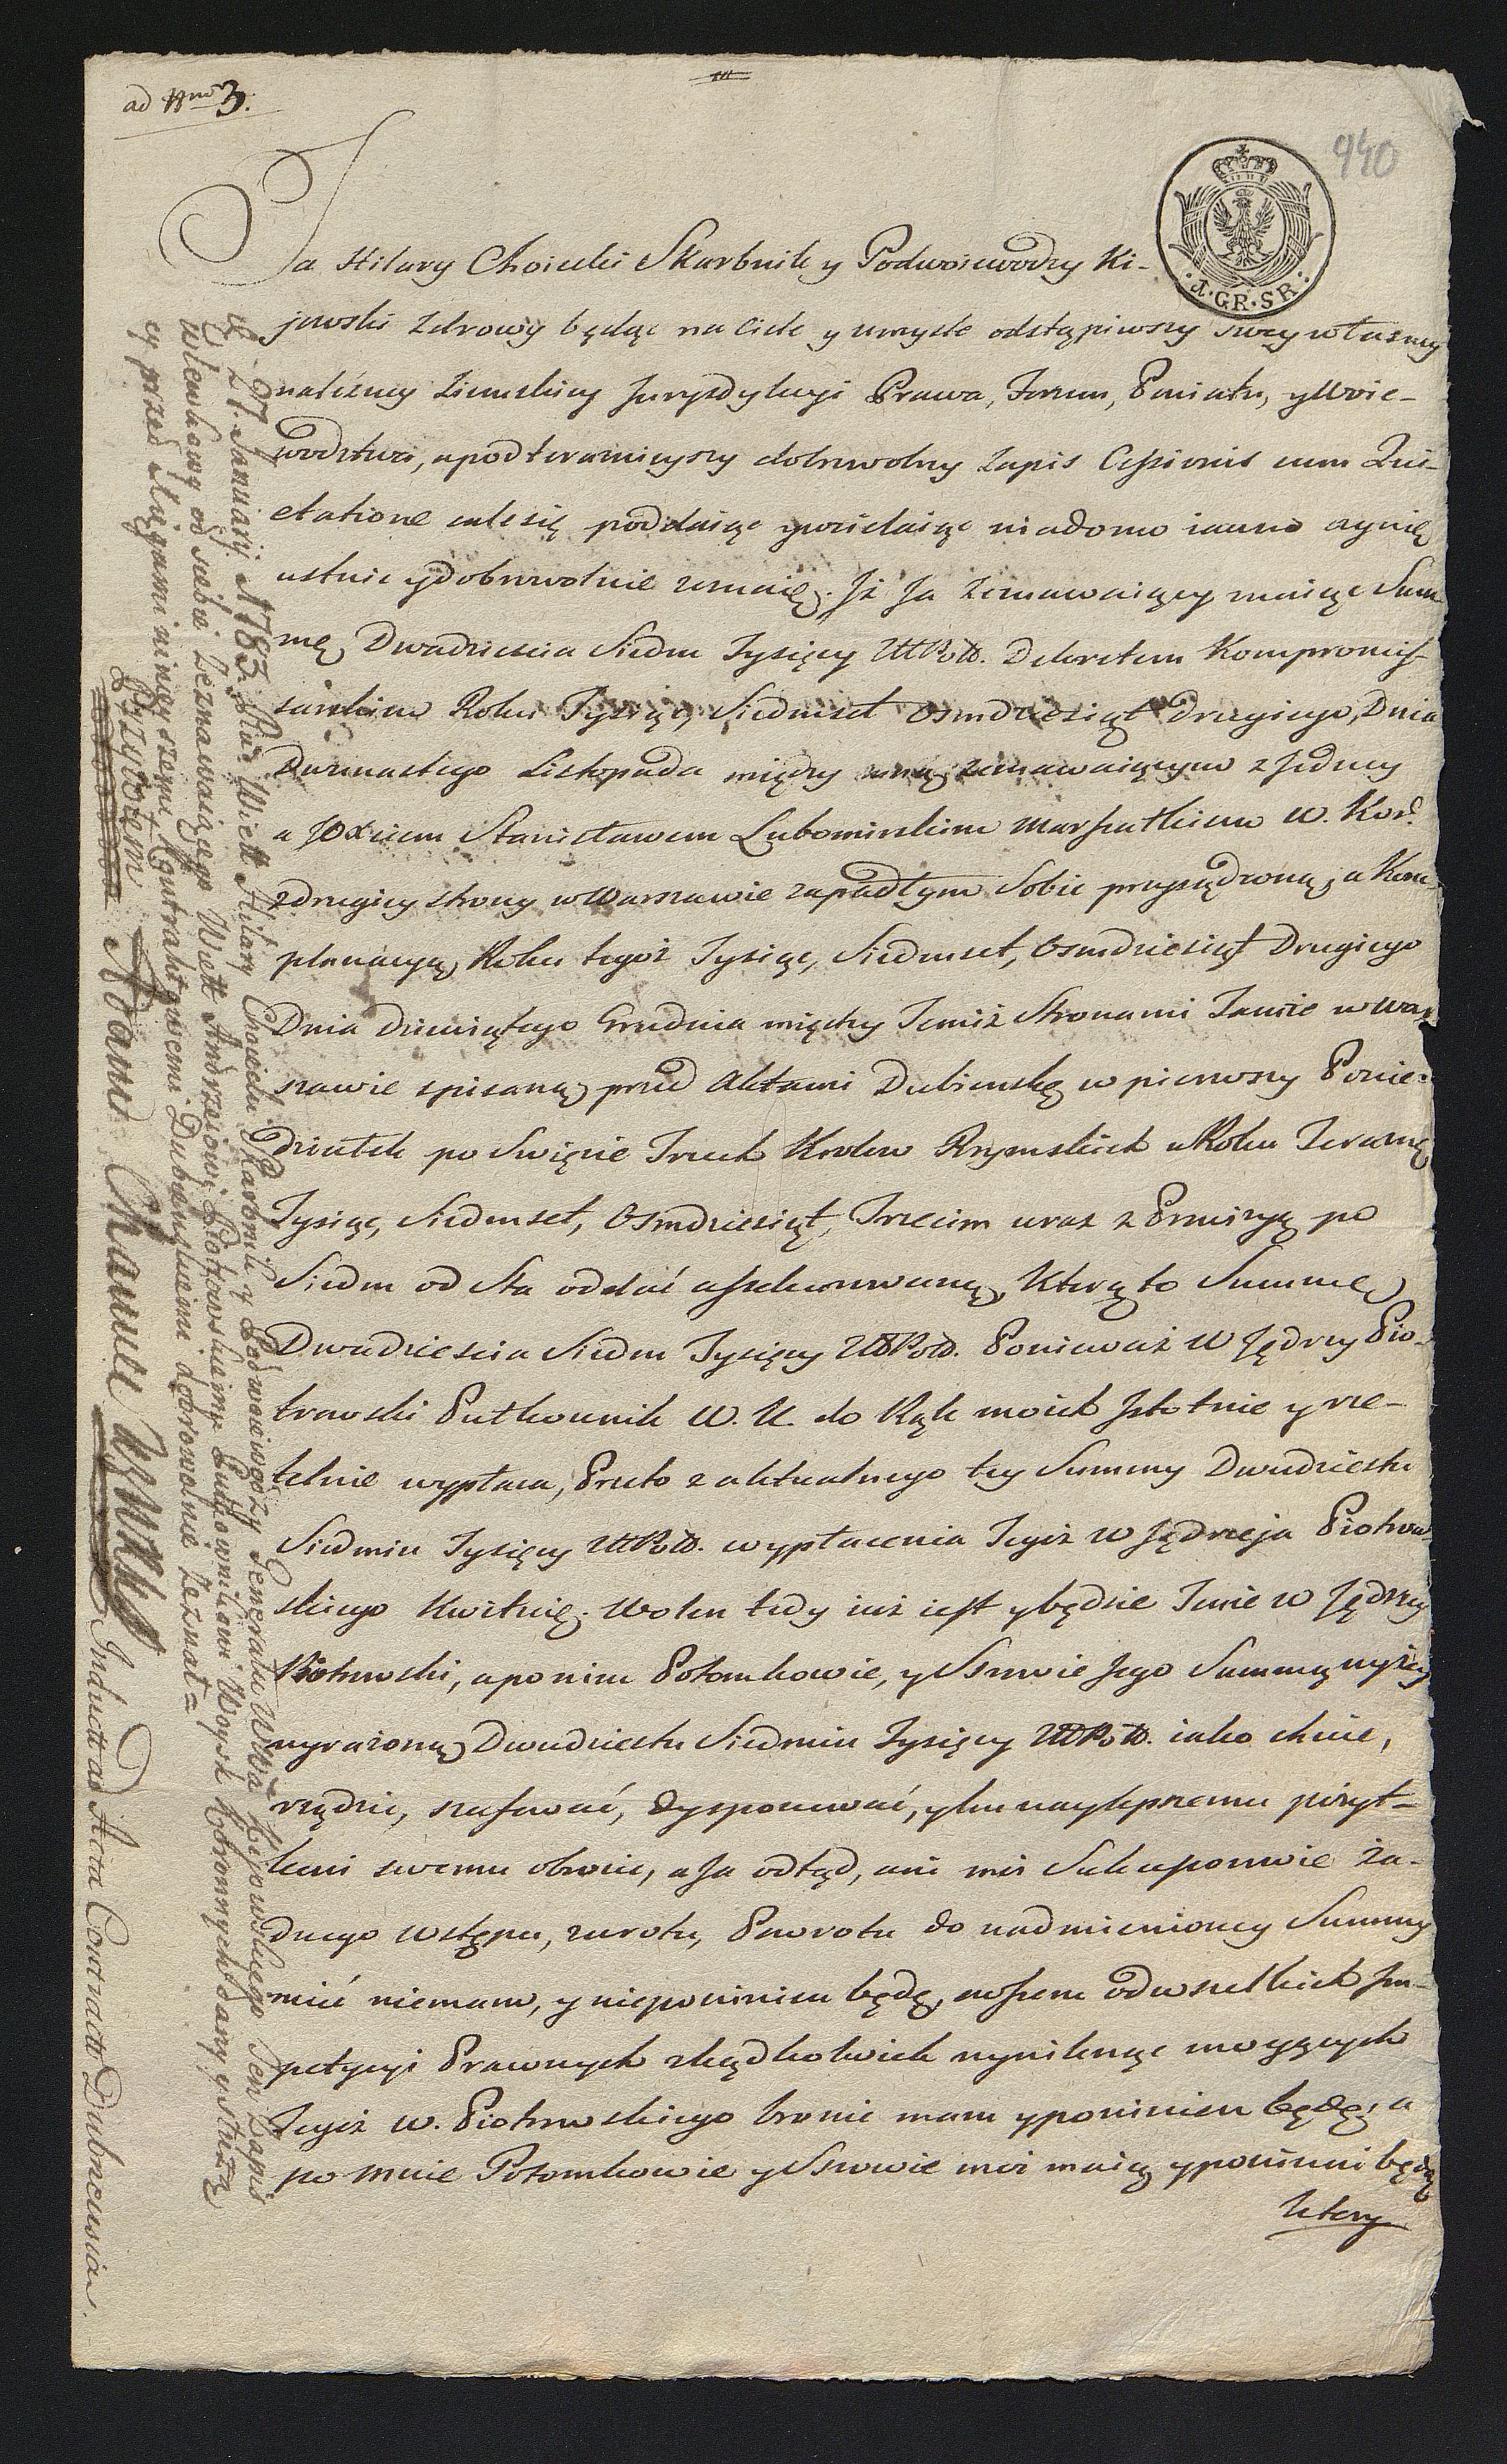 ad Nrum 3.
940
J. GR. SR.
Ja Hilary Choiecki Skarbnik y Podwoiewodzy Ki-
jowski zdrowy będąc na Ciele y umyśle odstąpiwszy swey własney
należney Ziemskiey Juryzdykcyi Prawa, Forum, Powiatu, y Woie-
wodztwa, a pod teraznieyszy dobrowolny Zapis Cessionis cum Qui-
etatione cale się poddaiąc y wcielaiąc wiadomo iawno czynię
ustnie y dobrowolnie zeznaię. Iż Ja Zeznawaiący maiąc Sum-
mę Dwadziescia Siedm Tysięcy Złł Poll. Dekretem Kompromis-
sarskim Roku Tysiąc, Siedmset Osmdziesiąt Drugiego, Dnia
Dwunastego Listopada między mną zeznawaiącym z Jedney
a JOXciem Stanisławem Lubomirskim Marszałkiem W. Kor.
z drugiey strony w Warszawie zapadłym Sobie przysądzoną, a Kom-
planacyą Roku tegoż Tysiąc, Siedmset, Osmdziesiąt Drugiego
Dnia Dziewiątego Grudnia między Temiż Stronami Tamże w War-
szawie spisaną przed Aktami Dubienskę w pierwszy Ponie-
działek po Swięcie Trzech Krolow Rzymskich w Roku Teraznę
Tysiąc, Siedmset, Osmdziesiąt, Trzecim wraz z Prowizyą po
Siedm od Sta oddać assekurowaną, Ktorą to Summę
Dwadziescia Siedm Tysięcy Złł Poll. Ponieważ W Jędrzy Pio-
trowski Pułkownik W. K. do Rąk moich Istotnie y rze-
telnie wypłaca, Przeto z aktualnego tey Summy Dwudziestu
Siedmiu Tysięcy Złł Poll. wypłacenia Tegoż W Jędrzeja Piotrow-
skiego Kwituię. Wolen tedy iuż iest y będzie Tenże W Jędrzey
Piotrowski, a po nim Potomkowie, y Ssorowie Jego Summą wyżey
wyrażoną Dwudziestu Siedmiu Tysięcy Złł Poll. iako chcie,
rządzić, szafować, dysponować, y ku naylepszemu pożyt-
kowi swemu obrocić, a Ja odtąd, ani moi Sukcessorowie ża-
dnego wstępu, zwrotu, Powrotu do nadmienioney Summy
mieć niemam, y niepowinien będę, owszem od wszelkich Im-
petycyi Prawnych zkądkolwiek wyniknąc mogących
Tegoż W. Piotrowskiego bronic mam y powinien będę, a
po mnie Potomkowie y Ssorowie moi maią y powinni będą
ktory
D. 27. Januarij 1783. Sta: Wiell Hilary Choiecki Skarbnik y Podwoiewodzy Generału Wdztwa Kijowskiego Ten Zapis
Wlewkowy od siebie Zeznawaiącego Wiell Andrzeiowi Piotrowskiemu Pułkownikowi Woysk Koronnych dany y służą
cy przed Xięgami ninieyszemi Contraktowemi Dubienskiemi dobrowolnie Zeznał=
Przybytem
Adam Chanue
Induct ad Acta Contract: Dubnensia.